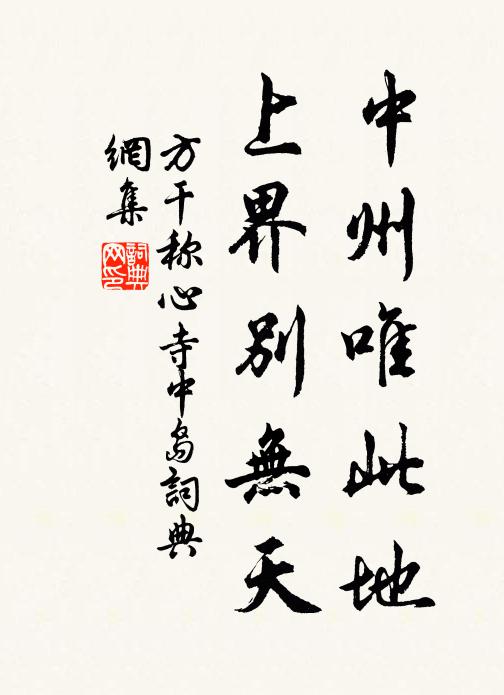 中州唯此地
上界別無天
方干称心寺中岛詞典
網集
詞典
网印